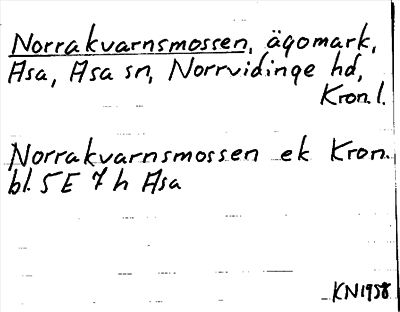 Norrakvarnsmossen, ägomark,
Asa, Asa sn, Norrvidinge hd,
Kron. l.
Norrakvarnsmossen ek Kron.
bl. 5 E 7 h Asa
KN 1958